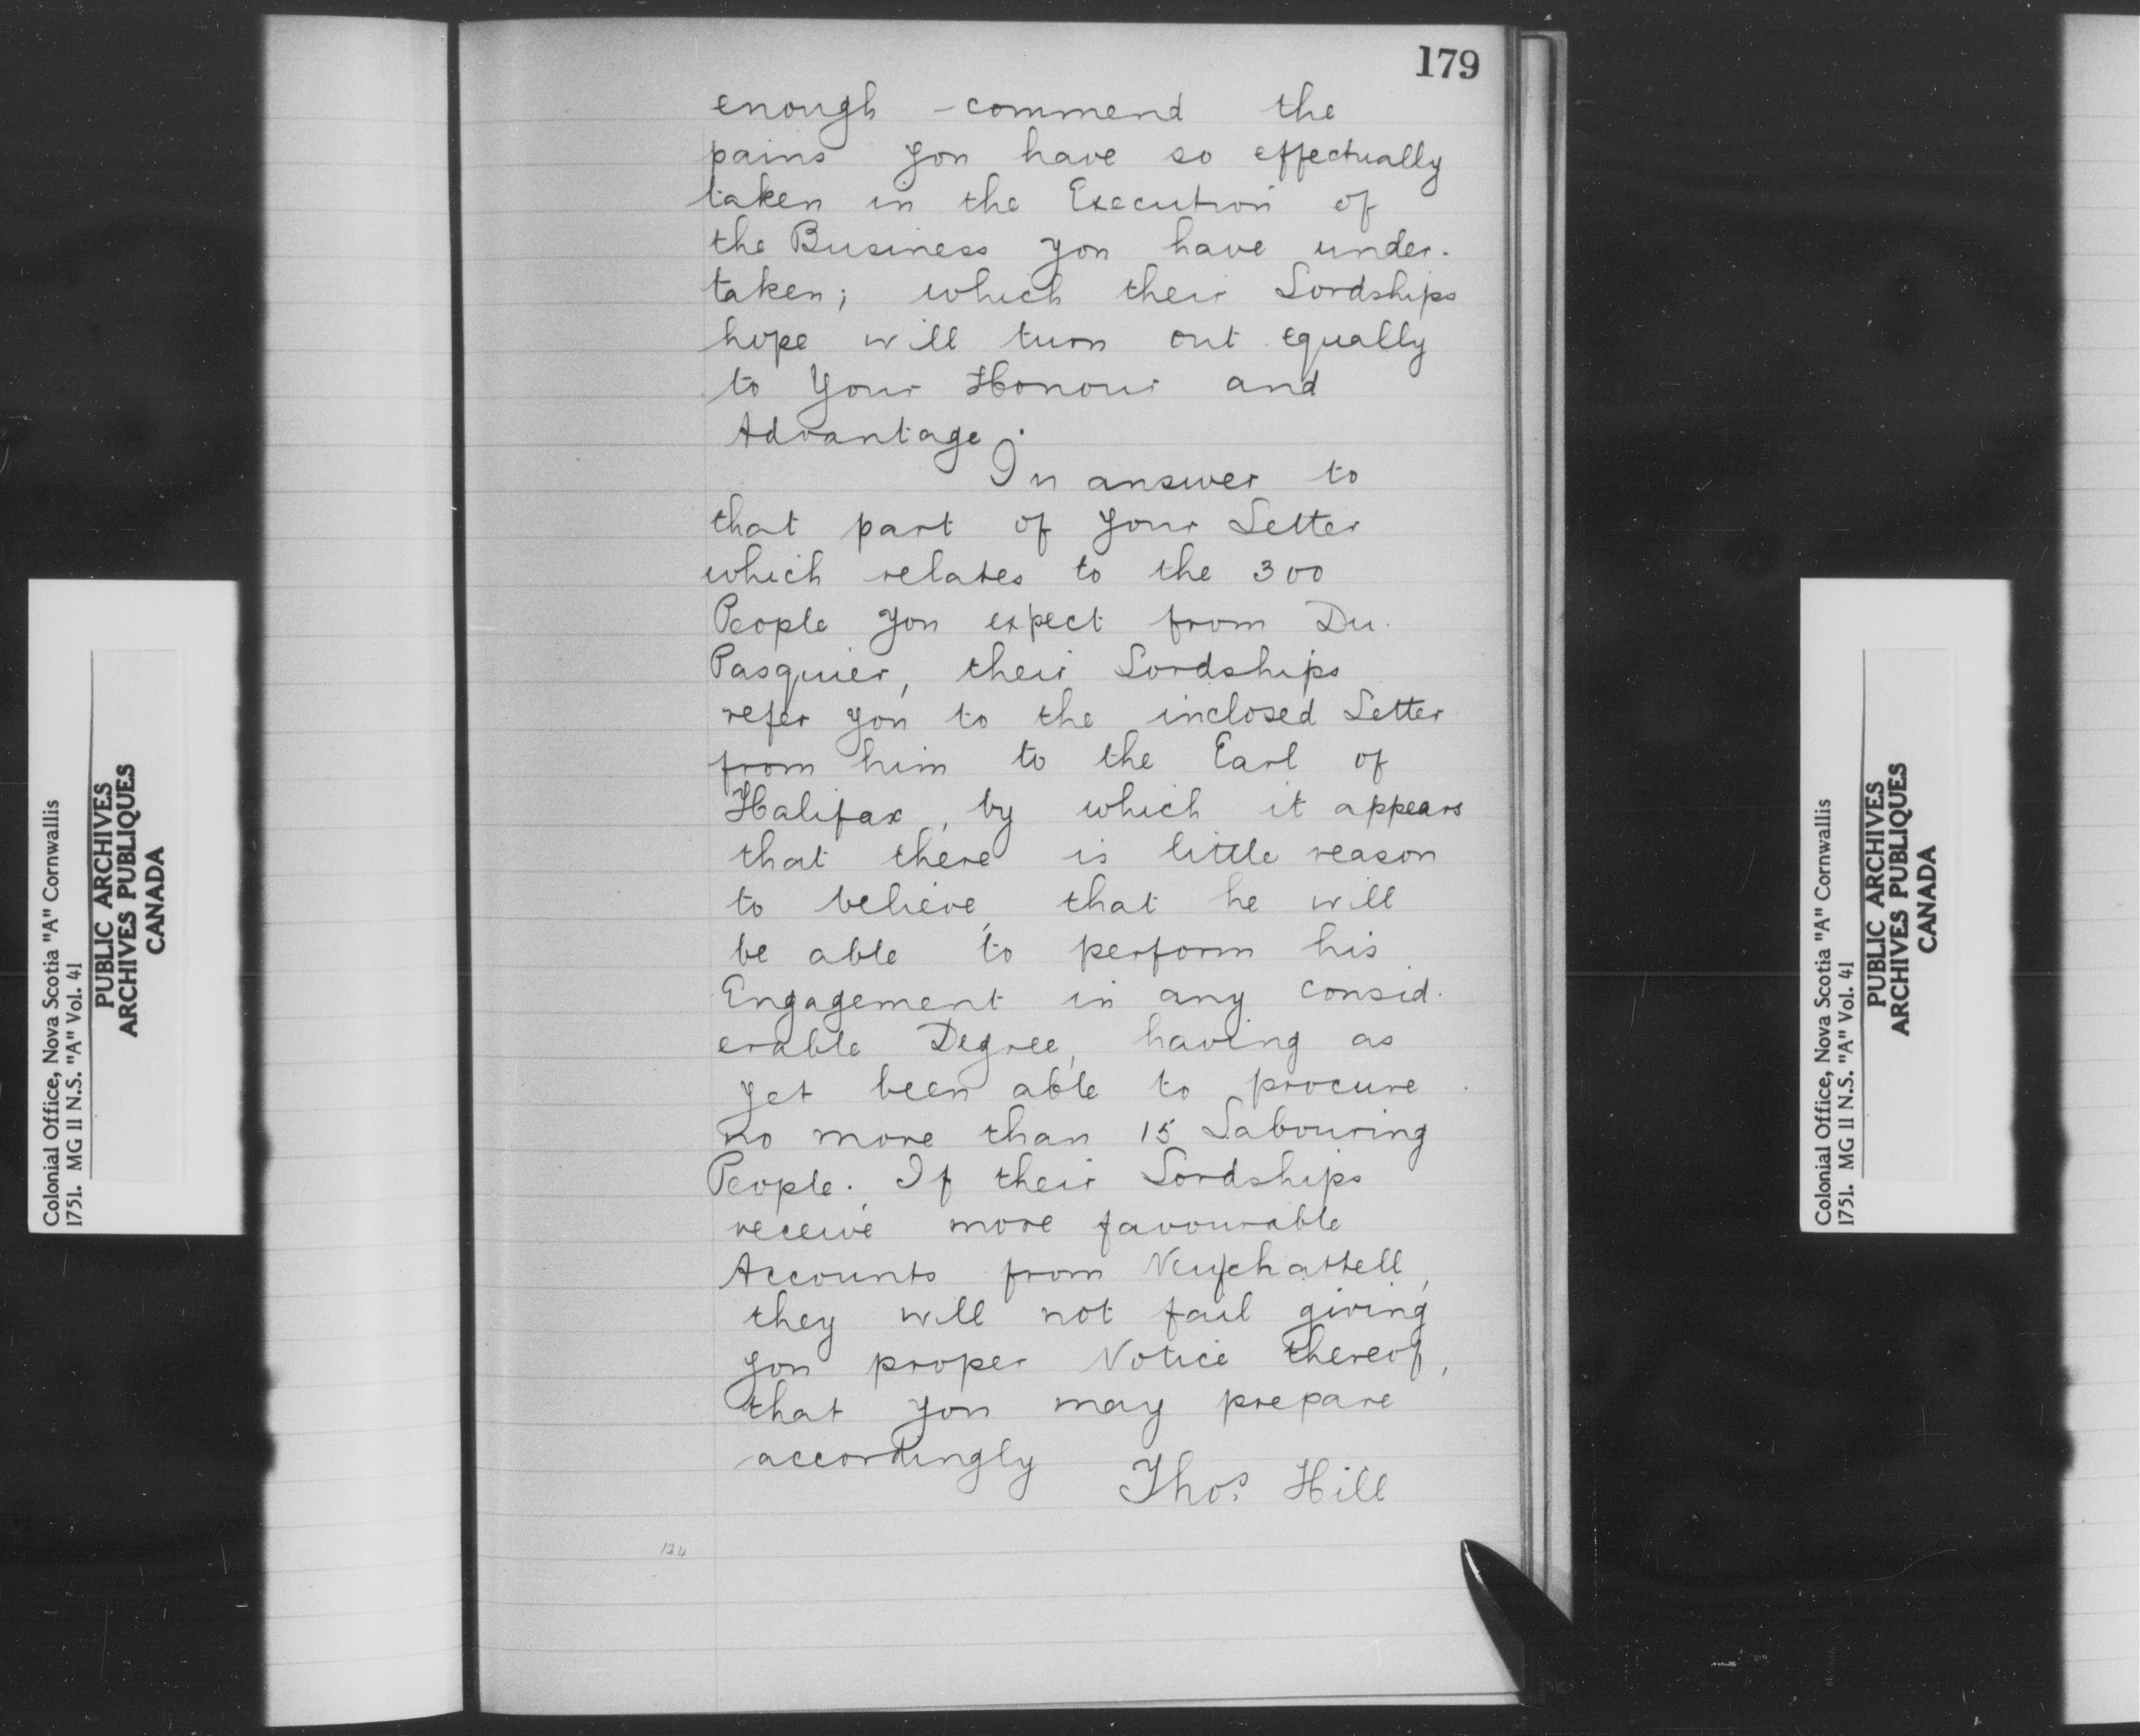 179
enough commend the
pains you have so effectually
taken in the Execution of
the Business you have under-
taken; which their Lordships
hope will turn out equally
to Your Honour and
Advantage.
In answer to
that part of your Letter
which relates to the 300
People you expect from Du
Pasquier, their Lordships
refer you to the inclosed Letter
from him to the Earl of
Halifax, by which it appears
that there is little reason
to believe, that he will
be able to perform his
Engagement in any consid-
erable Degree, having as
yet been able to procure
no more than 15 Labouring
People. If their Lordships
receive more favourable
Accounts from Neufchattell,
they will not fail giving
you proper Notice thereof,
that you may prepare
accordingly
Thos. Hill
134
Colonial Office, Nova Scotia "A" Cornwallis
1751. MG 11 N.S. "A" Vol. 41
PUBLIC ARCHIVES
ARCHIVES PUBLIQUES
CANADA
Colonial Office, Nova Scotia "A" Cornwallis
1751. MG 11 N.S. "A" Vol. 41
PUBLIC ARCHIVES
ARCHIVES PUBLIQUES
CANADA